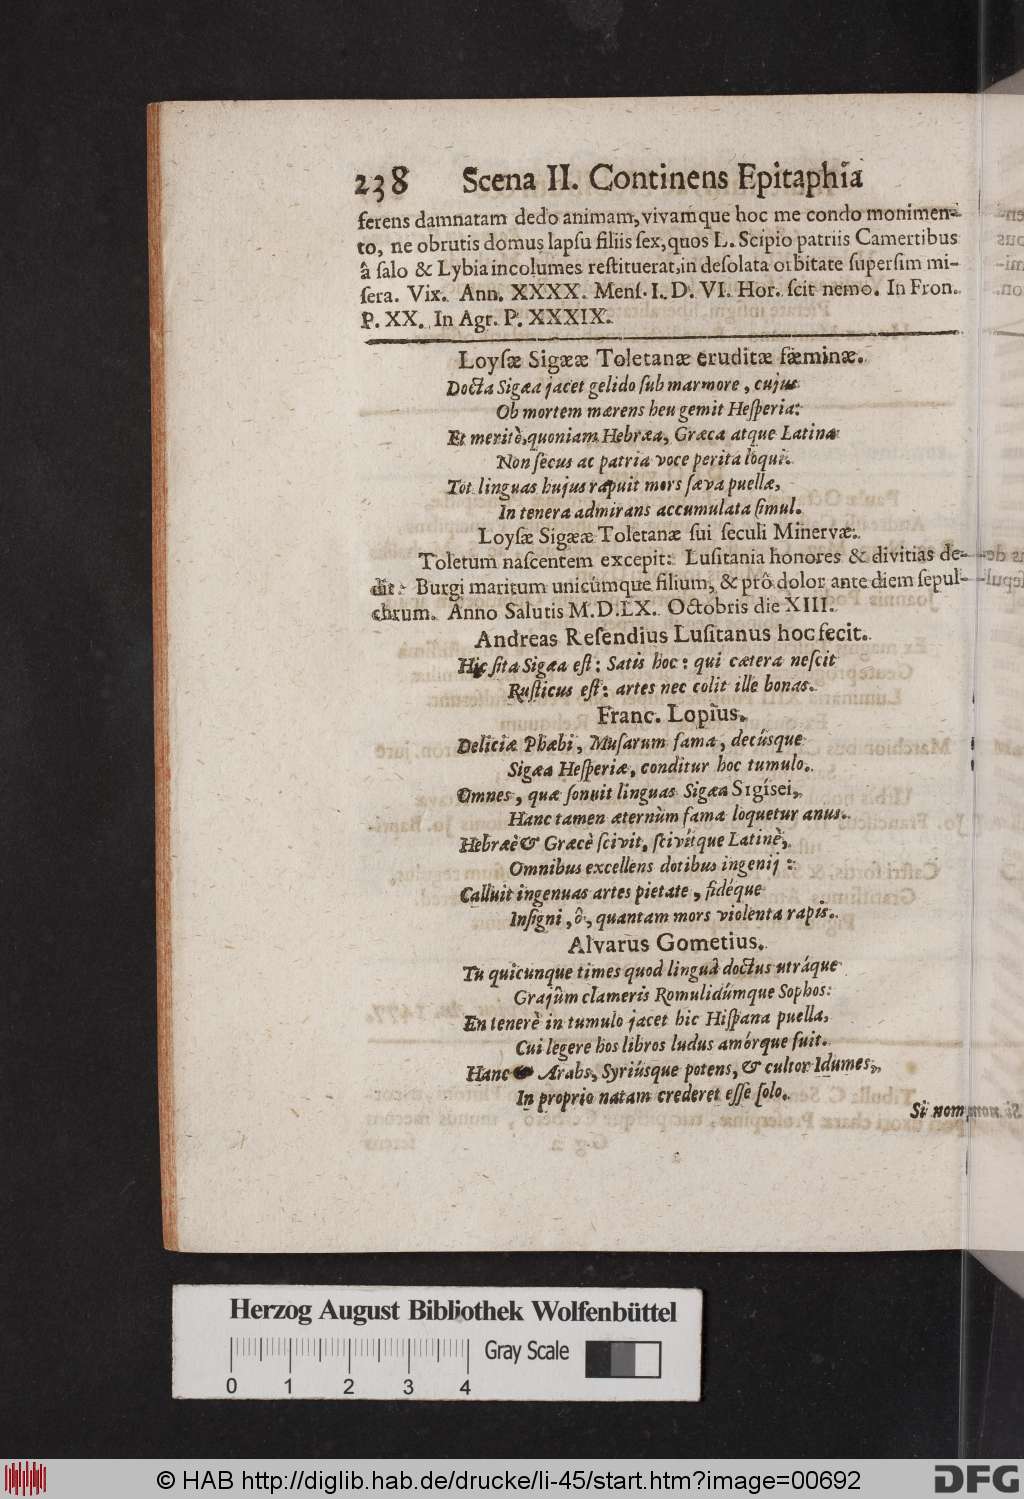 238 Scena II. Continens Epitaphia
ferens damnatam dedo animam, vivamque hoc me condo monimen-
to, ne obrutis domus lapsu filiis sex, quos L. Scipio patriis Camertibus
â salo & Lybia incolumes restituerat, in desolata orbitate supersim mi-
sera. Vix. Ann. XXXX. Mens. I. D. VI. Hor. scit nemo. In Fron.
P. XX. In Agr. P. XXXIX.
Loysæ Sigææ Toletanæ eruditæ fæminæ.
Docta Sigæa jacet gelido sub marmore, cujus
Ob mortem mærens heu gemit Hesperia:
Et meritò, quoniam Hebræa, Græca atque Latina
Non secus ac patria voce perita loqui.
Tot linguas hujus rapuit mors sæva puellæ,
In tenera admirans accumulata simul.
Loysæ Sigææ Toletanæ sui seculi Minervæ.
Toletum nascentem excepit: Lusitania honores & divitias de-
dit: Burgi maritum unicúmque filium, & prô dolor ante diem sepul-
chrum. Anno Salutis M.D.LX. Octobris die XIII.
Andreas Resendius Lusitanus hoc fecit.
Hic sita Sigæa est: Satis hoc: qui cætera nescit
Rusticus est: artes nec colit ille bonas.
Franc. Lopius.
Deliciæ Phæbi, Musarum fama, decúsque
Sigæa Hesperiæ, conditur hoc tumulo.
Omnes, quæ sonuit linguas Sigæa Sigísei,
Hanc tamen æternùm fama loquetur anus.
Hebræè & Græcè scivit, scivítque Latinè,
Omnibus excellens dotibus ingenij:
Calluit ingenuas artes pietate, fidéque
Insigni, ô, quantam mors violenta rapis.
Alvarus Gometius.
Tu quicunque times quod linguâ doctus utráque
Grajûm clameris Romulidúmque Sophos:
En tenerè in tumulo jacet hic Hispana puella,
Cui legere hos libros ludus amórque fuit.
Hanc Arabs, Syriúsque potens, & cultor Idumes,
In proprio natam crederet esse solo.
Si nom
Herzog August Bibliothek Wolfenbüttel
Gray Scale
0 1 2 3 4
© HAB http://diglib.hab.de/drucke/li-45/start.htm?image=00692
DFG